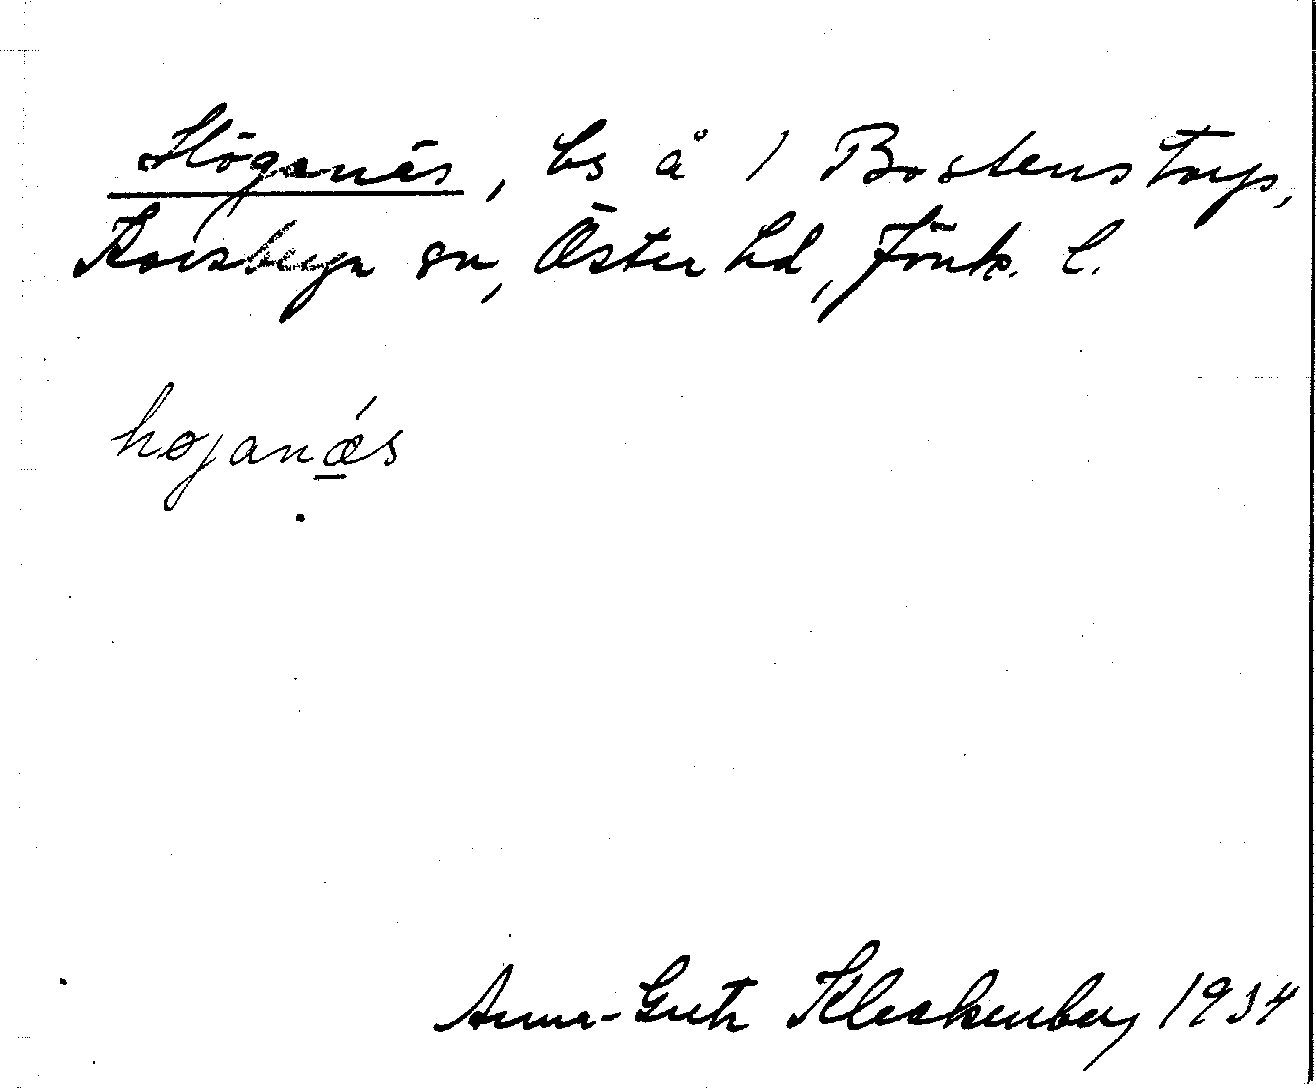 Höganäs, ls å 1 Bostenstorp,
Korsberga sn, Östra hd, Jönk. l.
højanæs
Anna-Greta Kleckenberg 1934